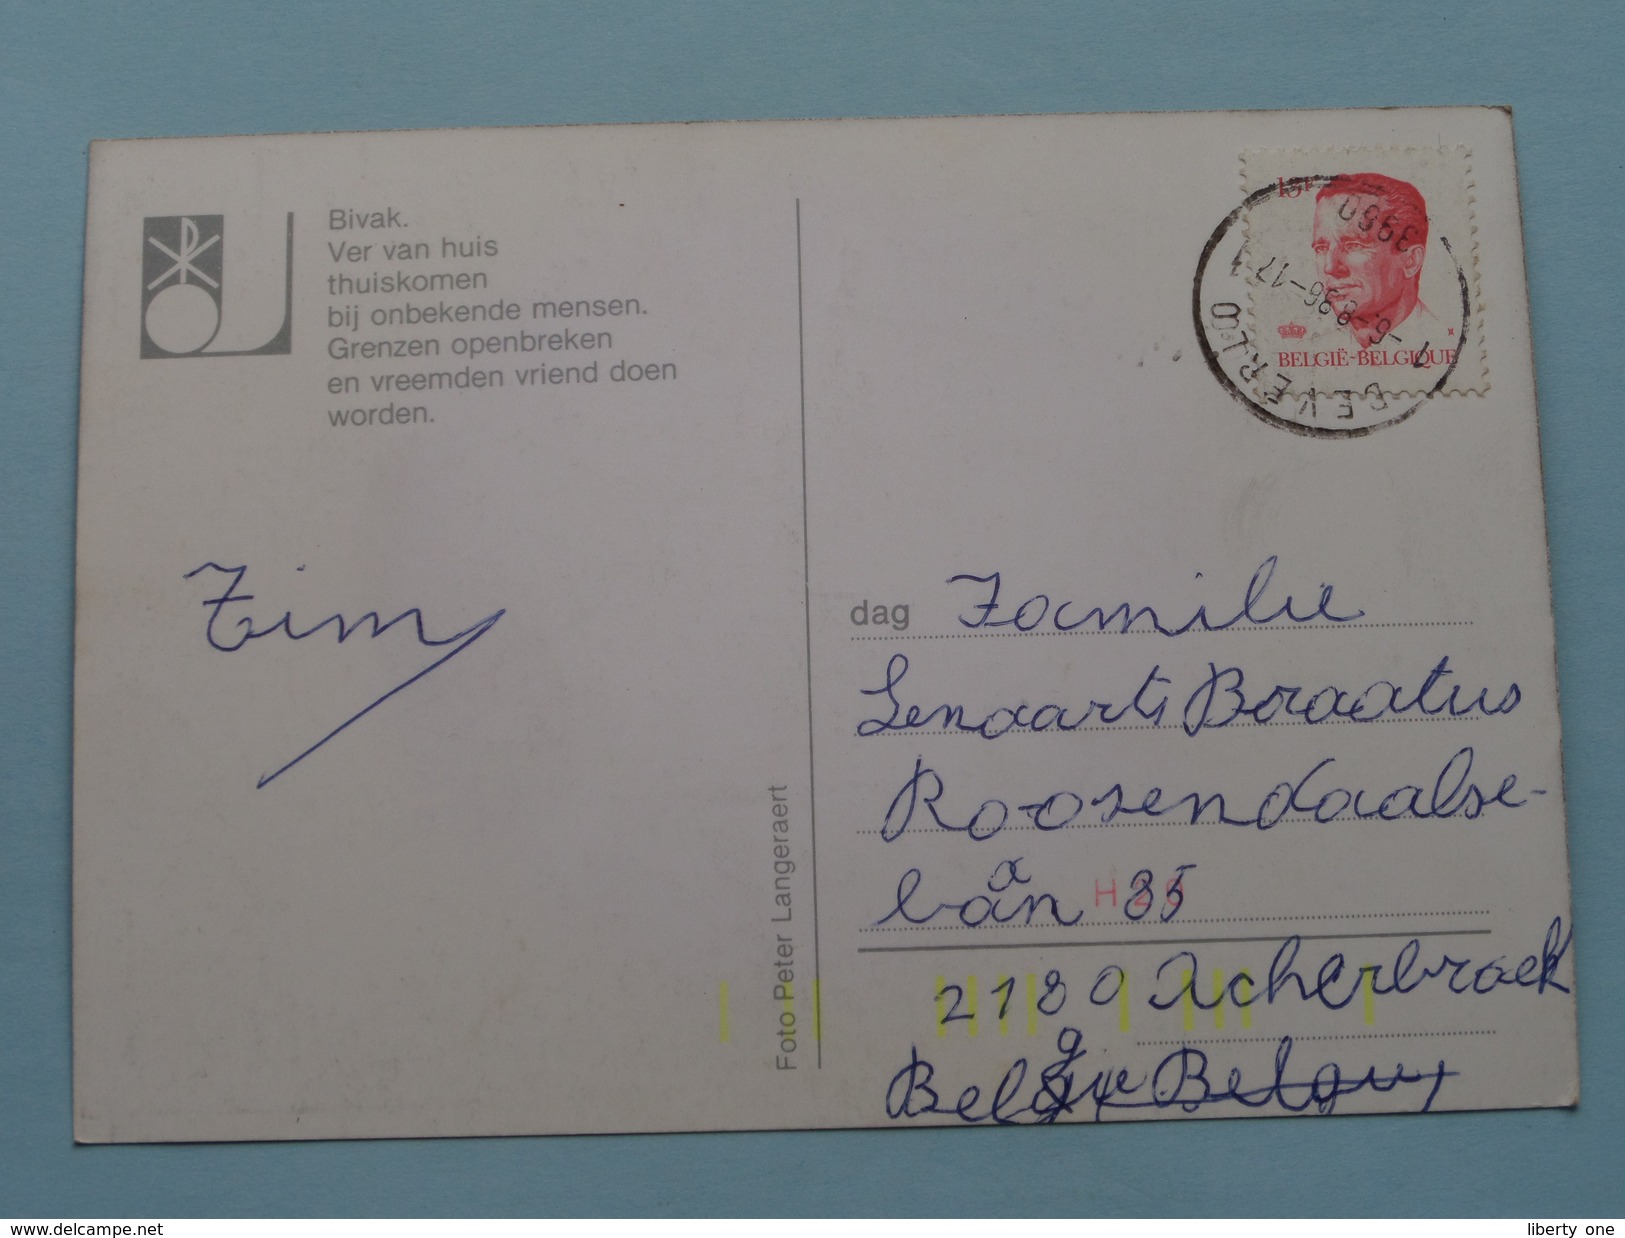 Bivak.
Ver van huis
thuiskomen
bij onbekende mensen.
Grenzen openbreken
en vreemden vriend doen
worden.
Tim
Foto Peter Langeraert
13F
BELGIË-BELGIQUE
3960
-6.-8.86-17
BEVERLO
dag Familie
Lenaarts Braatus
Roosendaalse-
baan 35
H 29
2180 Acherbroek
Belgie
delcampe.net
liberty_one